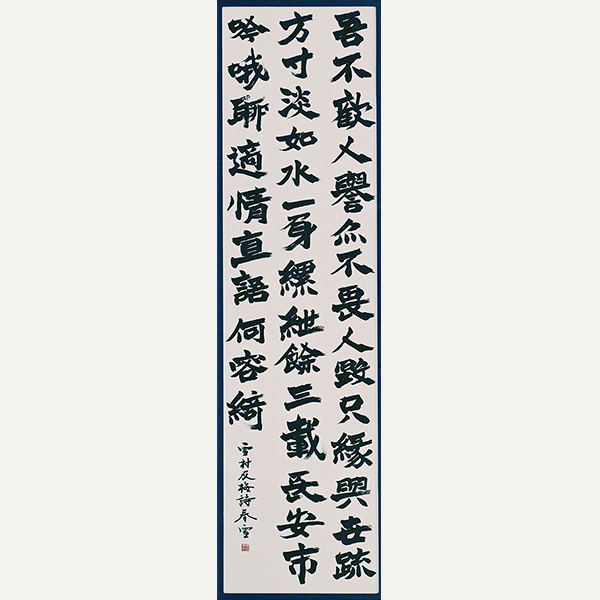 吾不歡人譽亦不畏人毀只緣與世疏
方寸淡如水一身縲紲餘三載長安市
吟哦聊適情直語何容綺
雪村友梅詩春雪